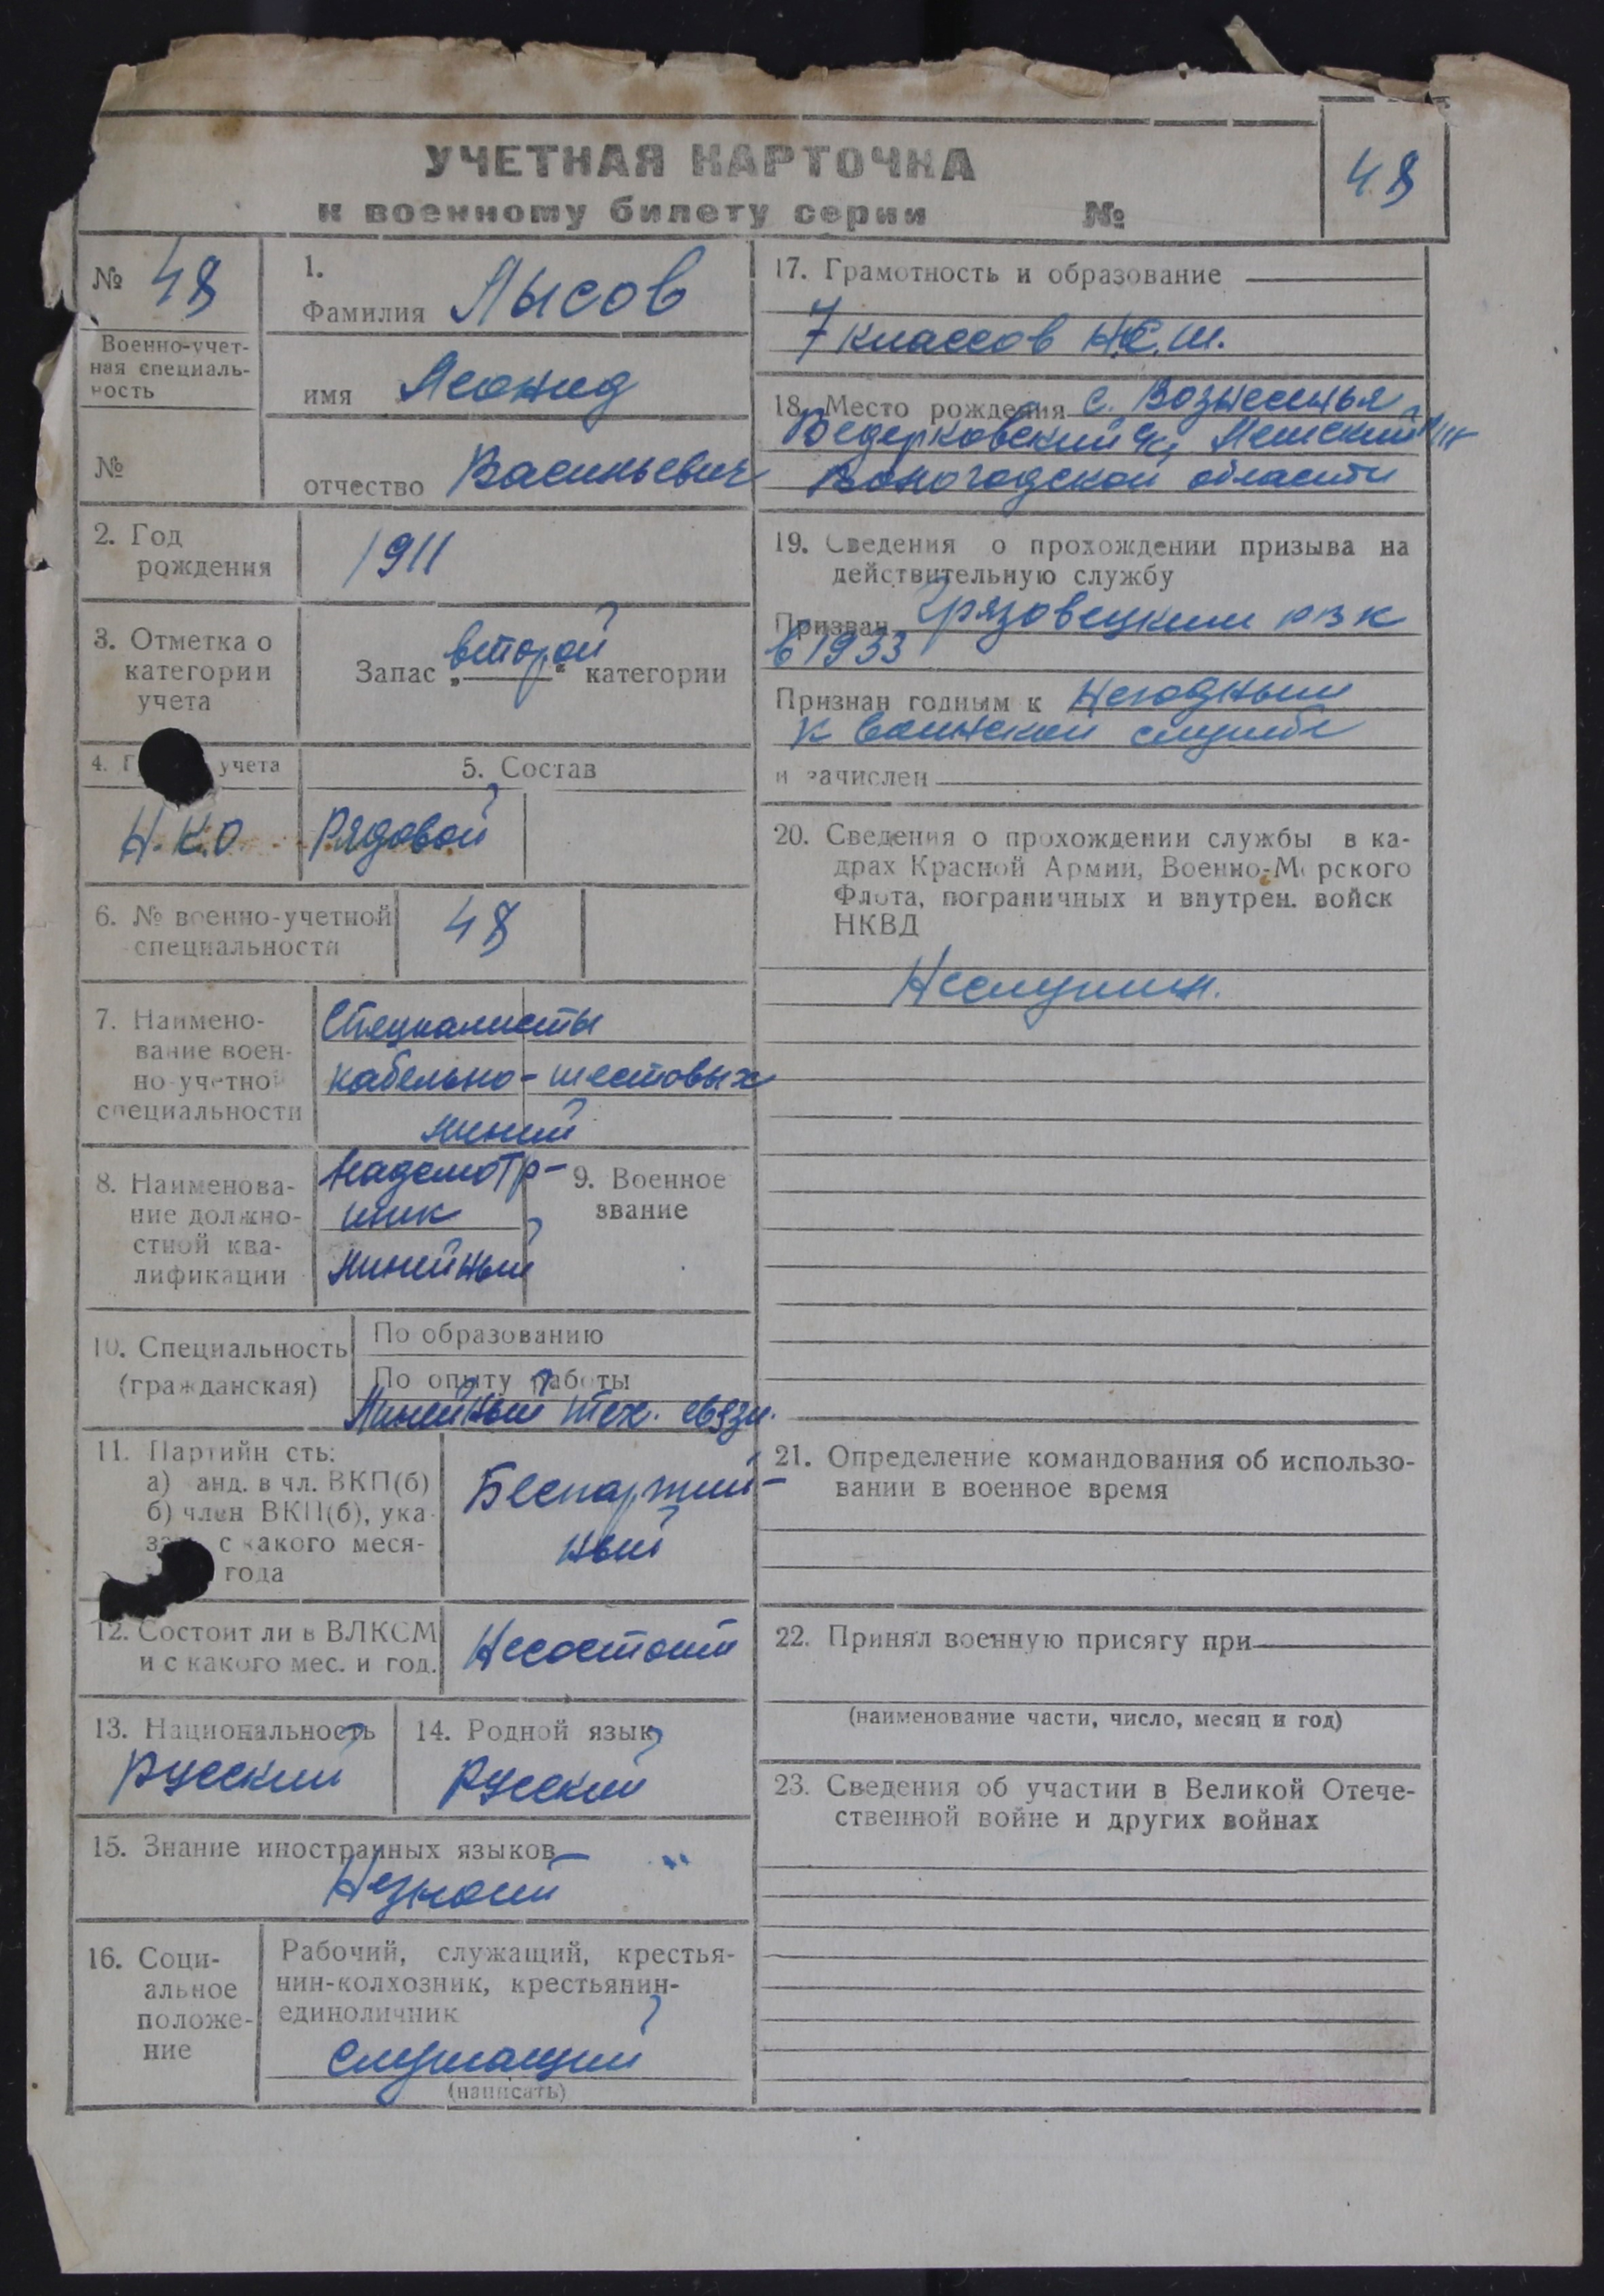 УЧЕТНАЯ КАРТОЧКА
к военному билету серии №
48
№ 48
Военно-учет-
ная специаль-
ность
№
1.
Фамилия Лысов
имя Леонид
отчество Васильевич
2. Год
рождения
1911
3. Отметка о
категории
учета
Запас „второй“ категории
4. Г учета
Н.К.О
5. Состав
Рядовой
6. № военно-учетной
специальности
48
7. Наимено-
вание воен-
но-учетной
специальности
Специалисты
кабельно-шестовых
линий
8. Наименова-
ние должно-
стной ква-
лификации
Надсмотр-
щик
линейный
9. Военное
звание
10. Специальность
(гражданская)
По образованию
По опыту работы
Линейный тех. связи.
11. Партийн сть:
а) анд. в чл. ВКП(б)
б) член ВКП(б), ука-
за с какого меся-
года
Беспартий-
ный
12. Состоит ли в ВЛКСМ
и с какого мес. и год.
Несостоит
13. Национальность
Русский
14. Родной язык
Русский
15. Знание иностранных языков
Незнает
16. Соци-
альное
положе-
ние
Рабочий, служащий, крестья-
нин-колхозник, крестьянин-
единоличник
Служащий
(написать)
17. Грамотность и образование
7 классов Н.С.Ш.
18. Место рождения с. Вознесенья
Вологодской области
19. Сведения о прохождении призыва на
действительную службу
Призван Грязовецким РВК
в 1933
Признан годным к Негодным
к воинской службе
и зачислен
20. Сведения о прохождении службы в ка-
драх Красной Армии, Военно-М рского
Флота, пограничных и внутрен. войск
НКВД
Неслужил.
21. Определение командования об использо-
вании в военное время
22. Принял военную присягу при
(наименование части, число, месяц и год)
23. Сведения об участии в Великой Отече-
ственной войне и других войнах